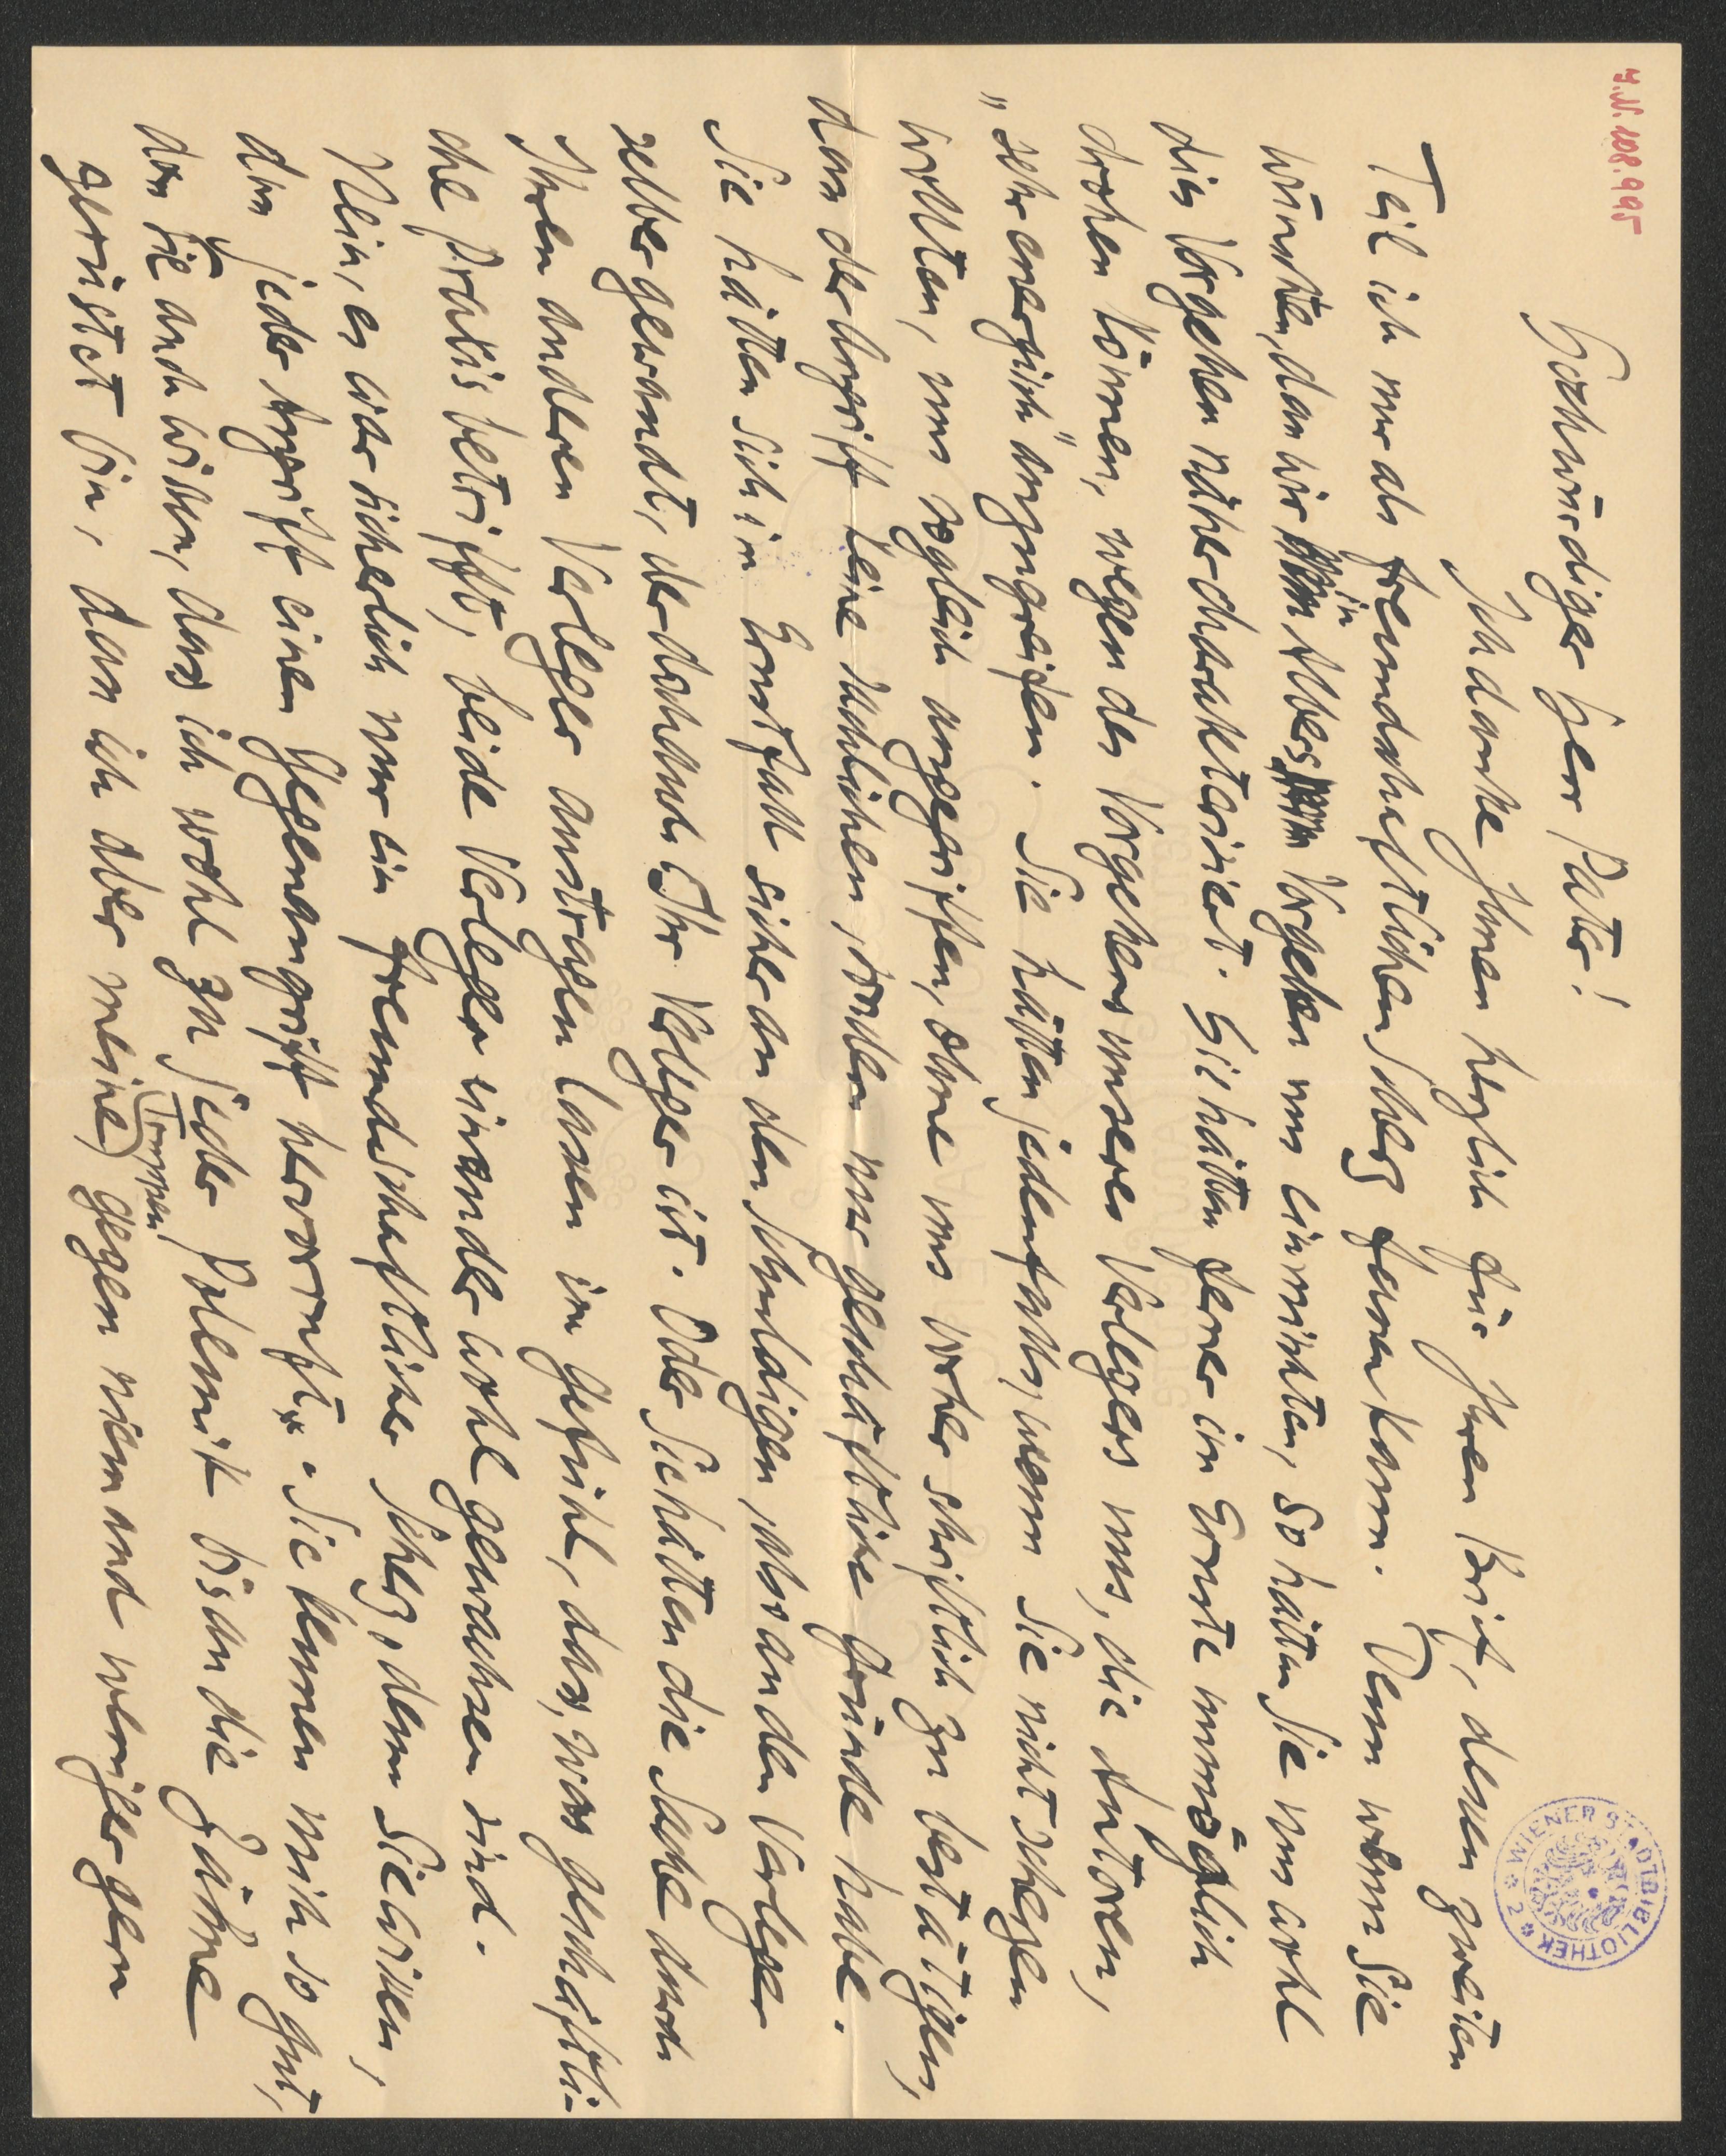 H.N. 108.995
WIENER STADTBIBLIOTHEK
Hochwürdiger Herr Pater!
Ich danke Ihnen herzlich für Ihren Brief, dessen zweiten
Teil ich nur als freundschaftlichen Scherz kann. Denn wenn Sie
wünschten, dass wir in Vorgehen uns einmischten, so hätten Sie uns wohl
dies Vorgehen näher charakterisiert. Sie hätten ferner im Ernste unmöglich
drohen können, wegen des Vorgehens unseres Verlegers uns, die Autoren,
„sehr energisch“ anzugreifen. Sie hätten jedenfalls, wenn Sie nicht scherzen
wollten, uns sogleich angegriffen, ohne uns vorher schriftlich zu bestätigen,
dass der Angriff keine sachlichen, sondern nur geschäftliche Gründe habe.
Sie hätten sich im Ernstfall sicher an den Schuldigen, also an den Verleger
selber gewandt, der doch auch Ihr Verleger ist. Oder Sie hätten die Sache durch
Ihren anderen Verleger austragen lassen im Gefühl, dass, was geschäftli-
che Praxis betrifft, beide Verleger einander wohl gewachsen sind.
Nein, es war sicherlich nur ein freundschaftlicher Scherz, denn Sie wissen,
dass jeder Angriff einen Gegenangriff hervorruft. Sie kennen mich so gut,
dass Sie auch wissen, dass ich wohl zu jeder Polemik bis an die Zähne
gerüstet bin, dass ich aber meine Truppen gegen niemand weniger gern